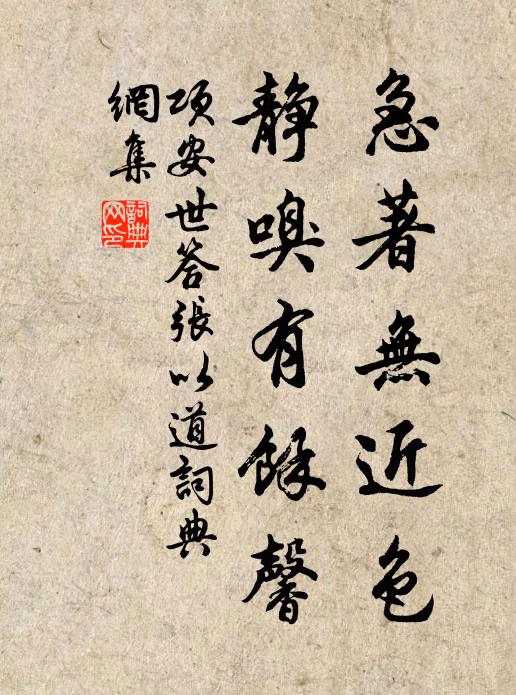 急著無近色
靜嗅有餘馨
項安世答張以道詞典
網集
詞典網印